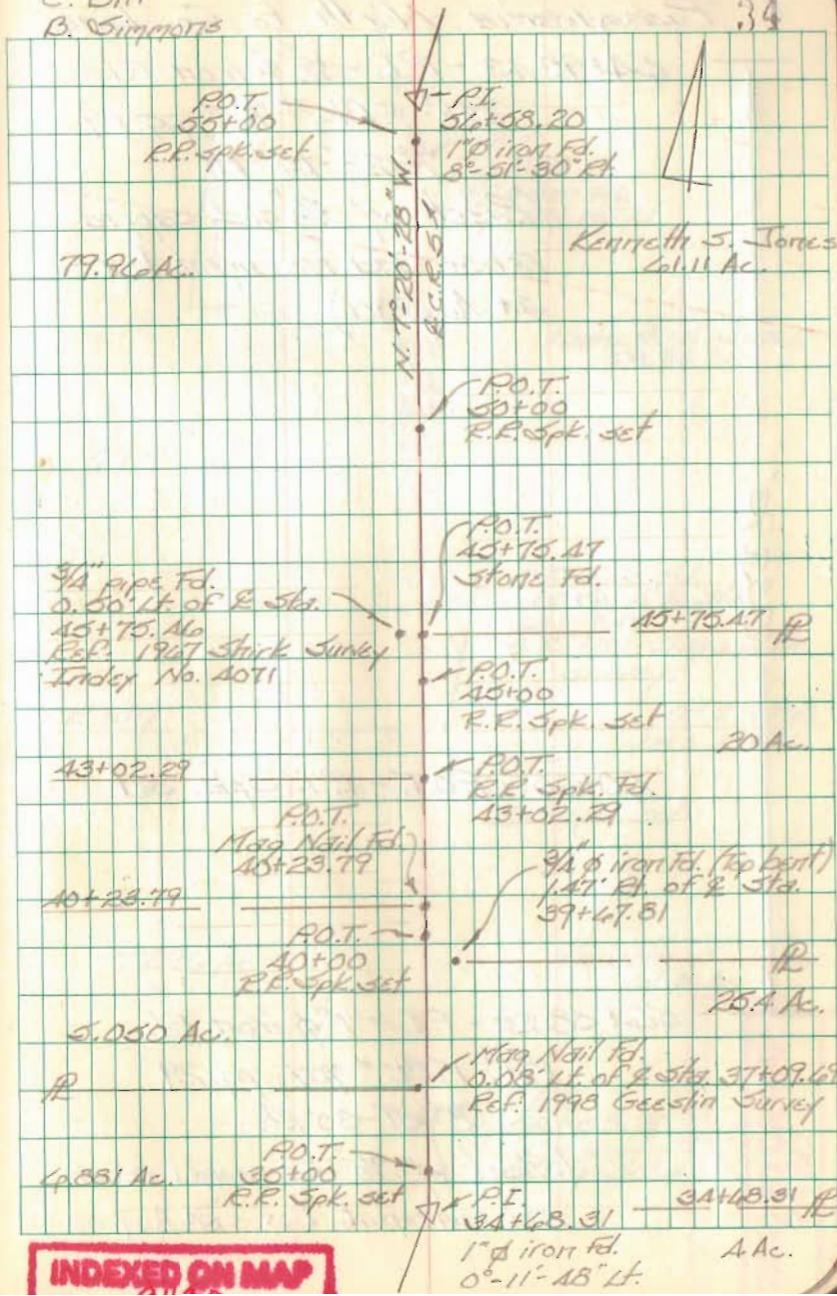 B. Simmons
34
P.O.T.
55+00
R.R. Spk. set
P.I.
56+58.20
1"ϕ iron Fd.
8°-51'-30" Rt
N. 7°-20'-28" W.
79.96 Ac.
Kenneth S. Jones
61.11 Ac.
P.O.T.
50+00
R.R. Spk. set
P.O.T.
45+75.47
Stone Fd.
3/4" pipe Fd.
0.50' Lt. of ℄ Sta.
45+75.46
Ref: 1967 Shirk Survey
Index No. 4071
45+75.47 PL
P.O.T.
45+00
R.R. Spk. set
20 Ac.
43+02.29
P.O.T.
R.R. Spk. Fd.
43+02.29
P.O.T.
Mag Nail Fd.
40+23.79
3/4"ϕ iron Fd. (Top bent)
1.47' Rt. of ℄ Sta.
39+67.81
40+23.79
P.O.T.
40+00
R.R. Spk. set
PL
25.4 Ac.
5.050 Ac.
PL
Mag Nail Fd.
0.08' Lt. of ℄ Sta. 37+09.69
Ref: 1998 Geeslin Survey
P.O.T.
35+00
R.R. Spk. set
6.881 Ac.
P.I.
34+68.31
1"ϕ iron Fd.
0°-11'-48" Lt.
34+68.31 PL
4 Ac.
INDEXED ON MAP